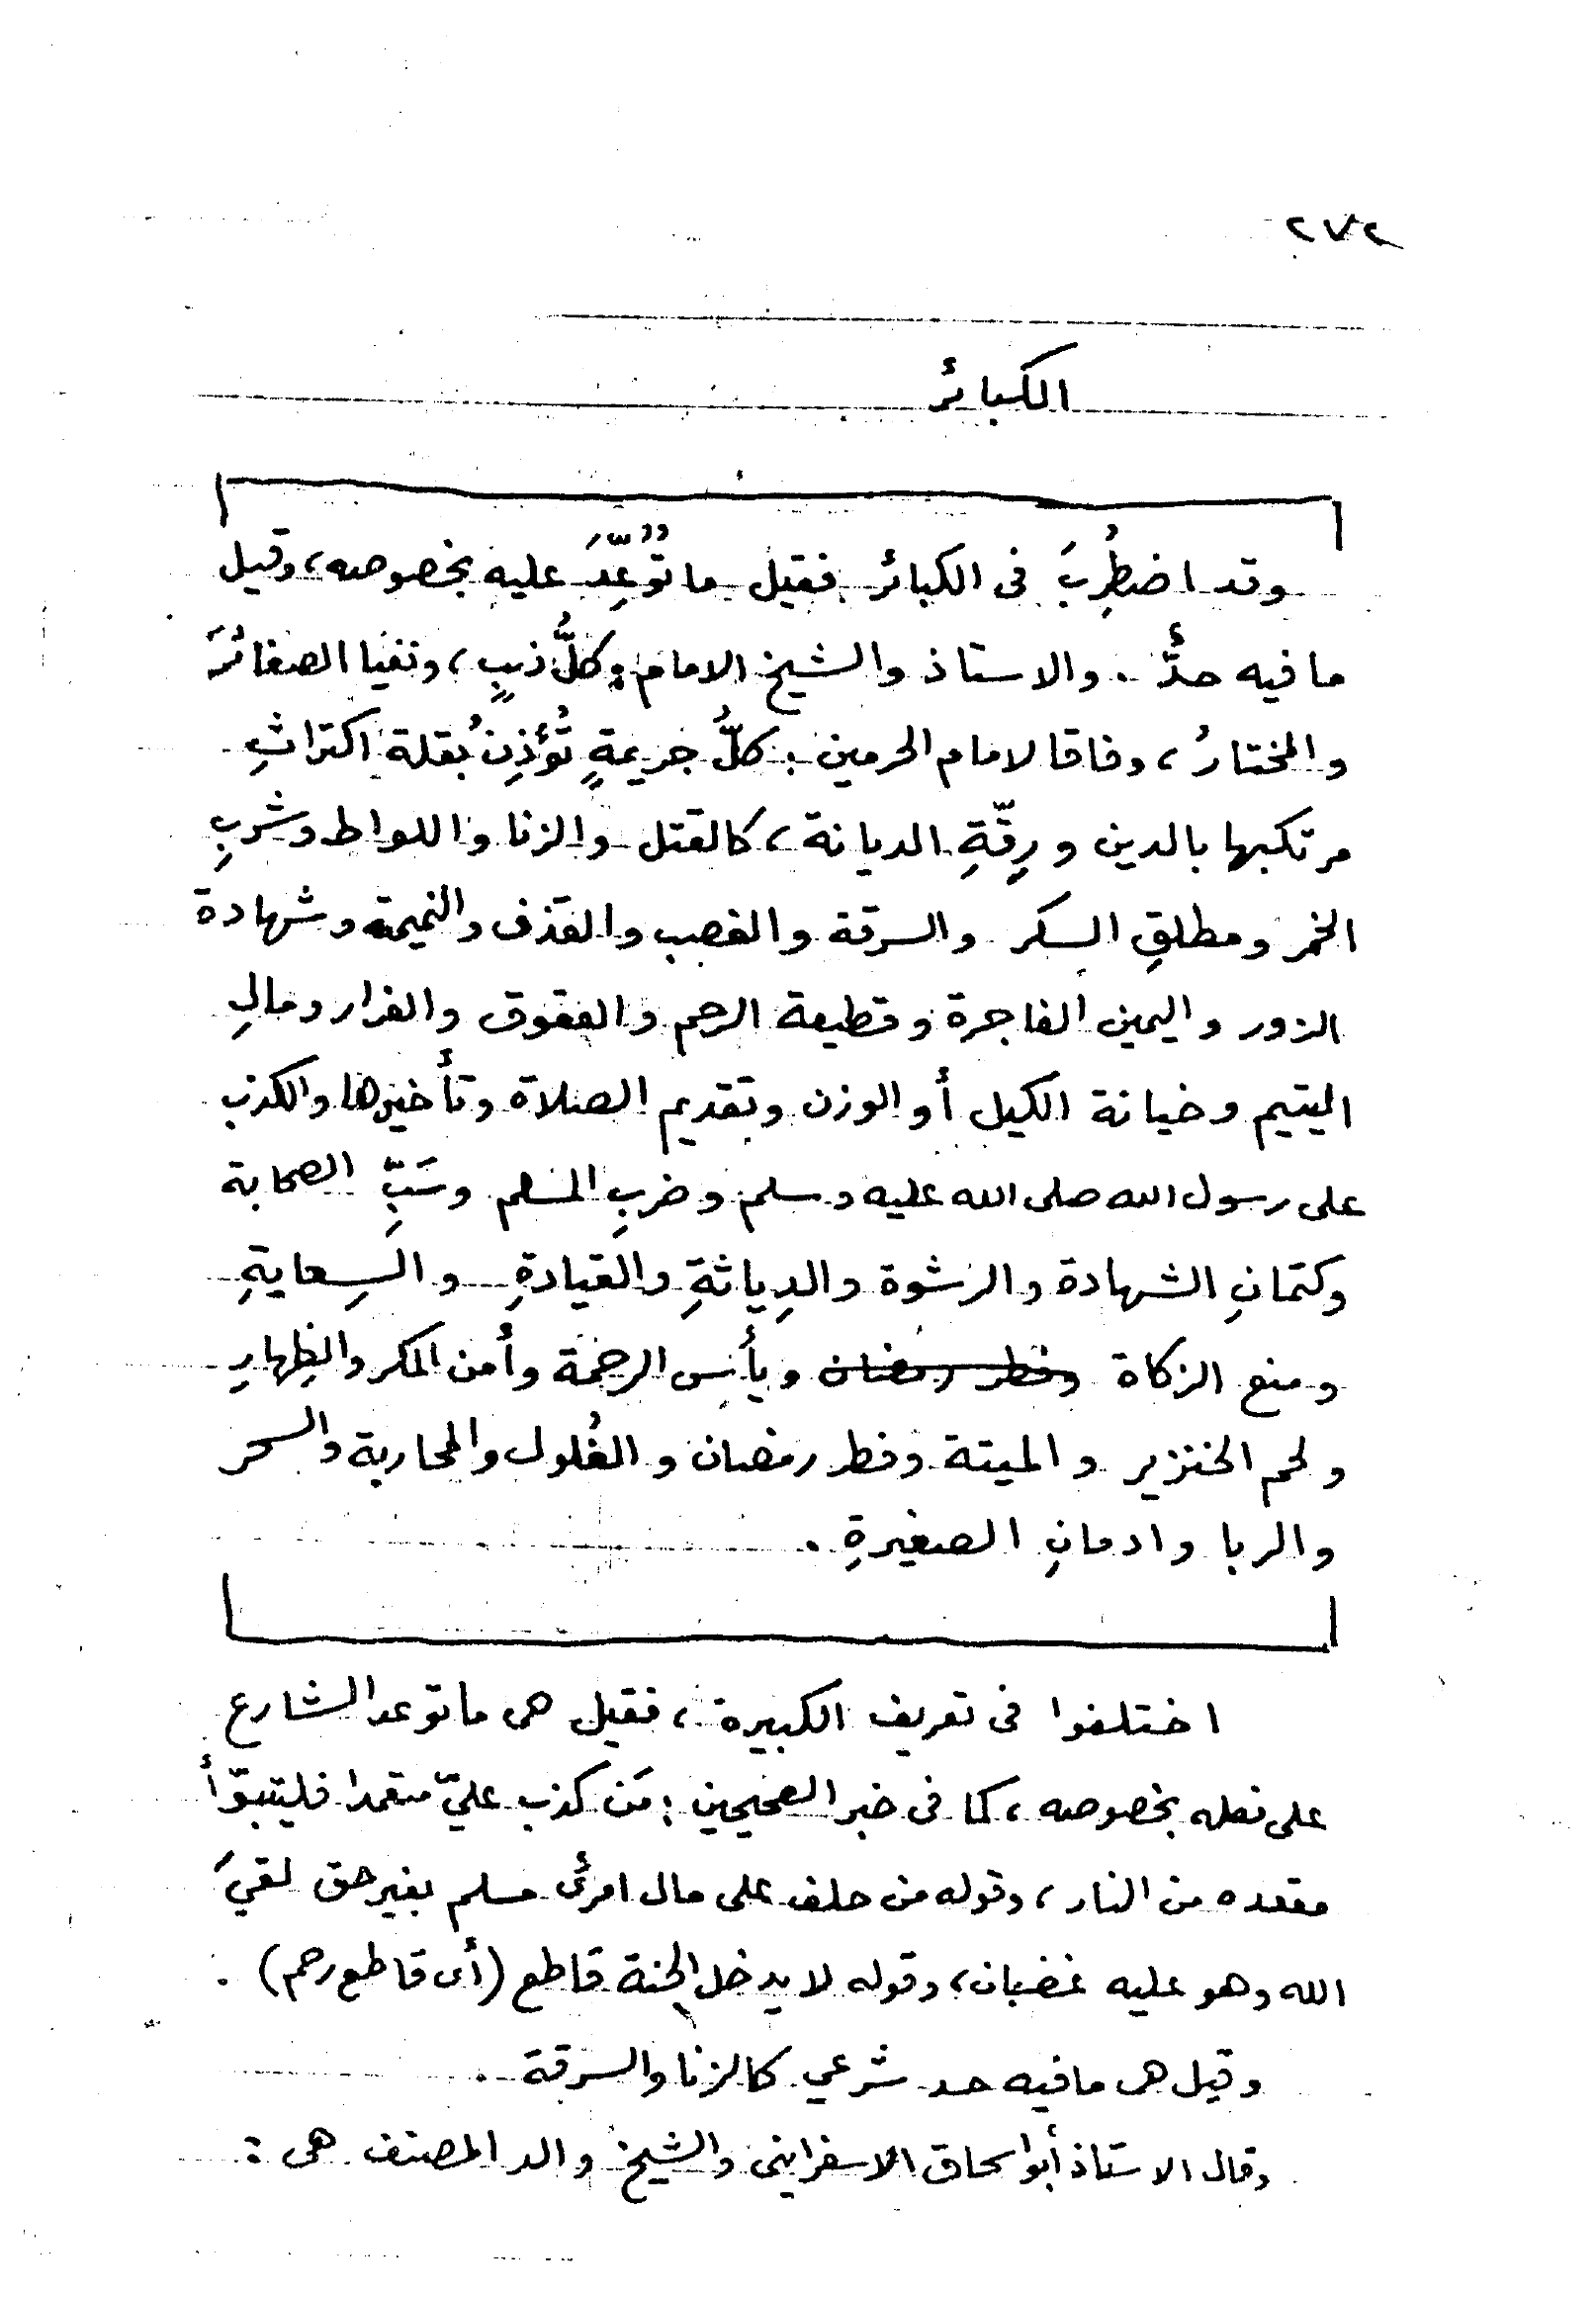 ٢٧٢
الكبائر
وقد اضطُرِبَ فى الكبائر فقيل ما تُوُعِّدَ عليه بخصوصه، وقيل
ما فيه حدٌّ . والاستاذ والشيخ الامام : كلُّ ذنبٍ، ونفيا الصغائرَ
والمختارُ، وفاقا لامام الحرمين : كلُّ جريمةٍ تُؤذِنُ بقلة اكتراثِ
مرتكبها بالدين ورِقّةِ الديانة، كالقتل والزنا واللواط وشربِ
الخمر ومطلقِ السكر والسرقة والغصب والقذف والنميمة وشهادة
الزور واليمين الفاجرة وقطيعة الرحم والعقوق والفرار ومالِ
اليتيم وخيانة الكيل أو الوزن وتقديم الصلاة وتأخيرها والكذب
على رسول الله صلى الله عليه وسلم وضربِ المسلم وسَبِّ الصحابة
وكتمانِ الشهادة والرشوة والدِياثةِ والقيادةِ والسِعايةِ
ومنع الزكاة وفطر رمضان ويأسِ الرحمة وأمن المكر والظِهارِ
ولحم الخنزير والميتة وفطر رمضان والغُلول والمحاربة والسحر
والربا وادمانِ الصغيرةِ .
اختلفوا فى تعريف الكبيرة، فقيل هى ما توعد الشارع
على فعله بخصوصه، كما فى خبر الصحيحين : مَن كذب عليّ متعمدا فليتبوّأ
مقعده من النار، وقوله من حلف على مال امرئ مسلم بغير حق لقيَ
الله وهو عليه غضبان، وقوله لا يدخل الجنة قاطع (أى قاطع رحم) .
وقيل هى ما فيه حد شرعي كالزنا والسرقة .
وقال الاستاذ أبو اسحاق الاسفراينى والشيخ والد المصنف هى :